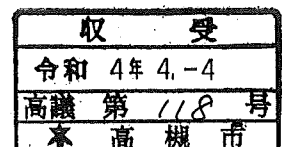 収受
令和 4年 4.-4
高議 第 118 号
★ 高槻市